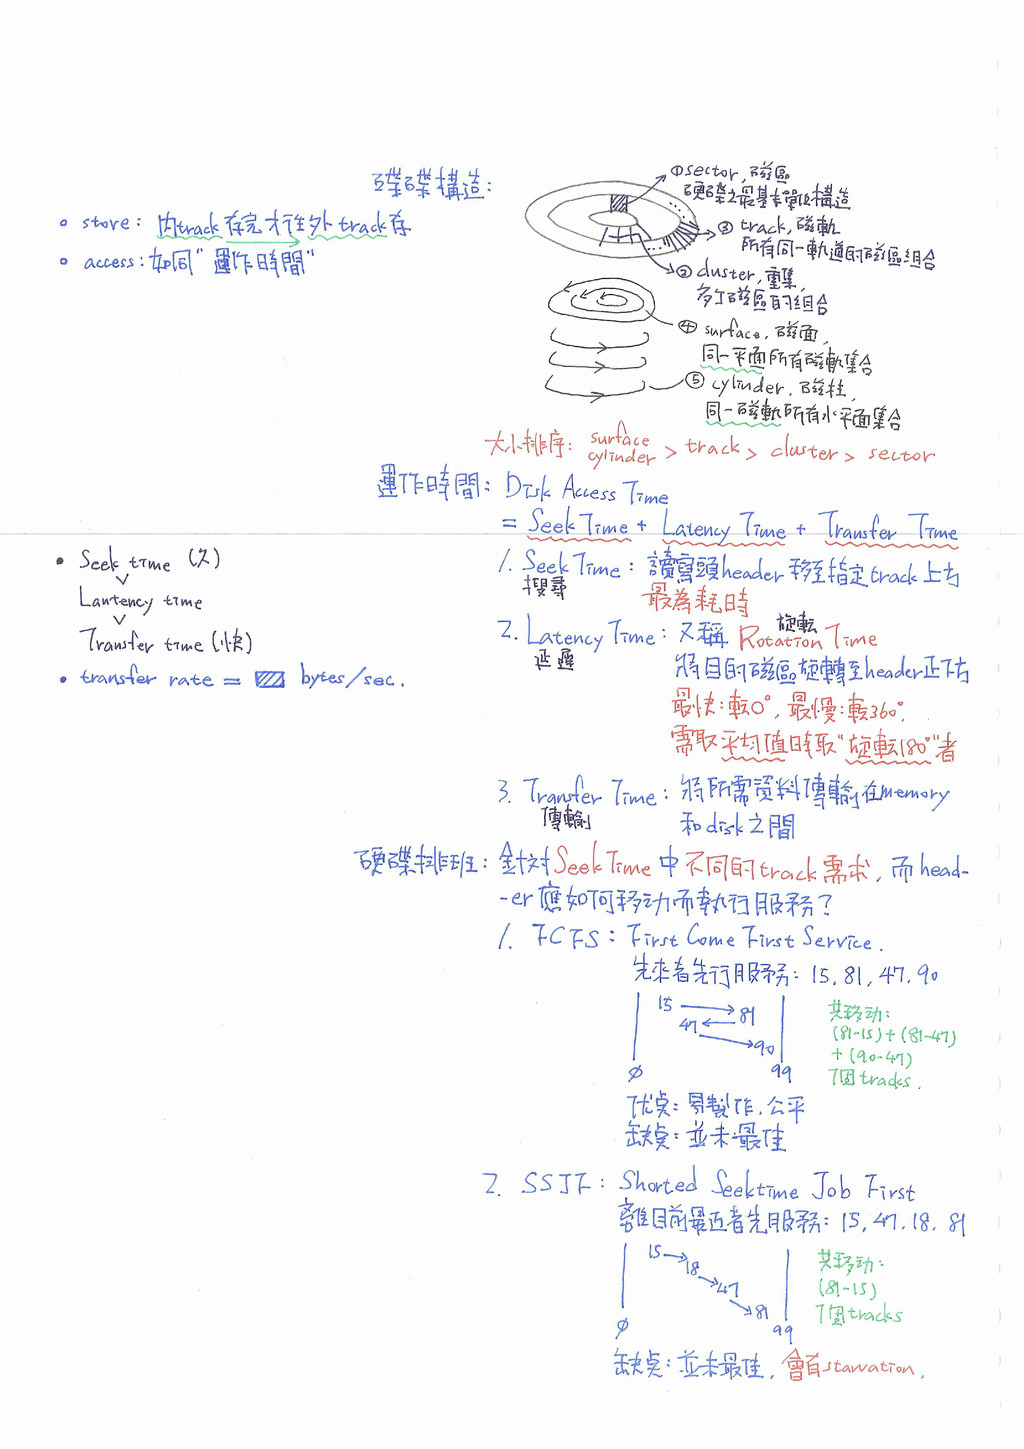 硬碟構造:
store: 內track存完才往外track存
access: 如同"運作時間"
①sector, 磁區
硬碟之最基本單位構造
③ track, 磁軌
所有同一軌道的磁區組合
② cluster, 叢集,
多個磁區的組合
④ surface, 磁面,
同一平面所有磁軌集合
⑤ cylinder, 磁柱,
同一磁軌所有水平面集合
大小排序: surface
cylinder > track > cluster > sector
運作時間: Disk Access Time
= Seek Time + Latency Time + Transfer Time
Seek time (久)
Lantency time
Transfer time (快)
transfer rate = bytes/sec.
1. Seek Time: 讀寫頭header移至指定track上方
搜尋
最為耗時
2. Latency Time: 又稱 Rotation Time
旋転
延遲
將目的磁區旋轉至header正下方
最快:転0°, 最慢:転360°.
需取平均值時取"旋転180°"者
3. Transfer Time: 將所需資料傳輸在memory
傳輸
和disk之間
硬碟排班: 針対Seek Time中不同的track需求, 而head-
-er應如何移动而執行服務?
1. FCFS: First Come First Service.
先來者先行服務: 15, 81, 47, 90
15 81
47
90
0 99
共移动:
(81-15)+(81-47)
+(90-47)
个固tracks.
优点: 易製作, 公平
缺点: 並未最佳
2. SSJF: Shorted Seektime Job First
離目前最近者先服務: 15, 47, 18, 81
15
18
47
81
0 99
共移动:
(81-15)
个固tracks
缺点: 並未最佳, 會有starvation.